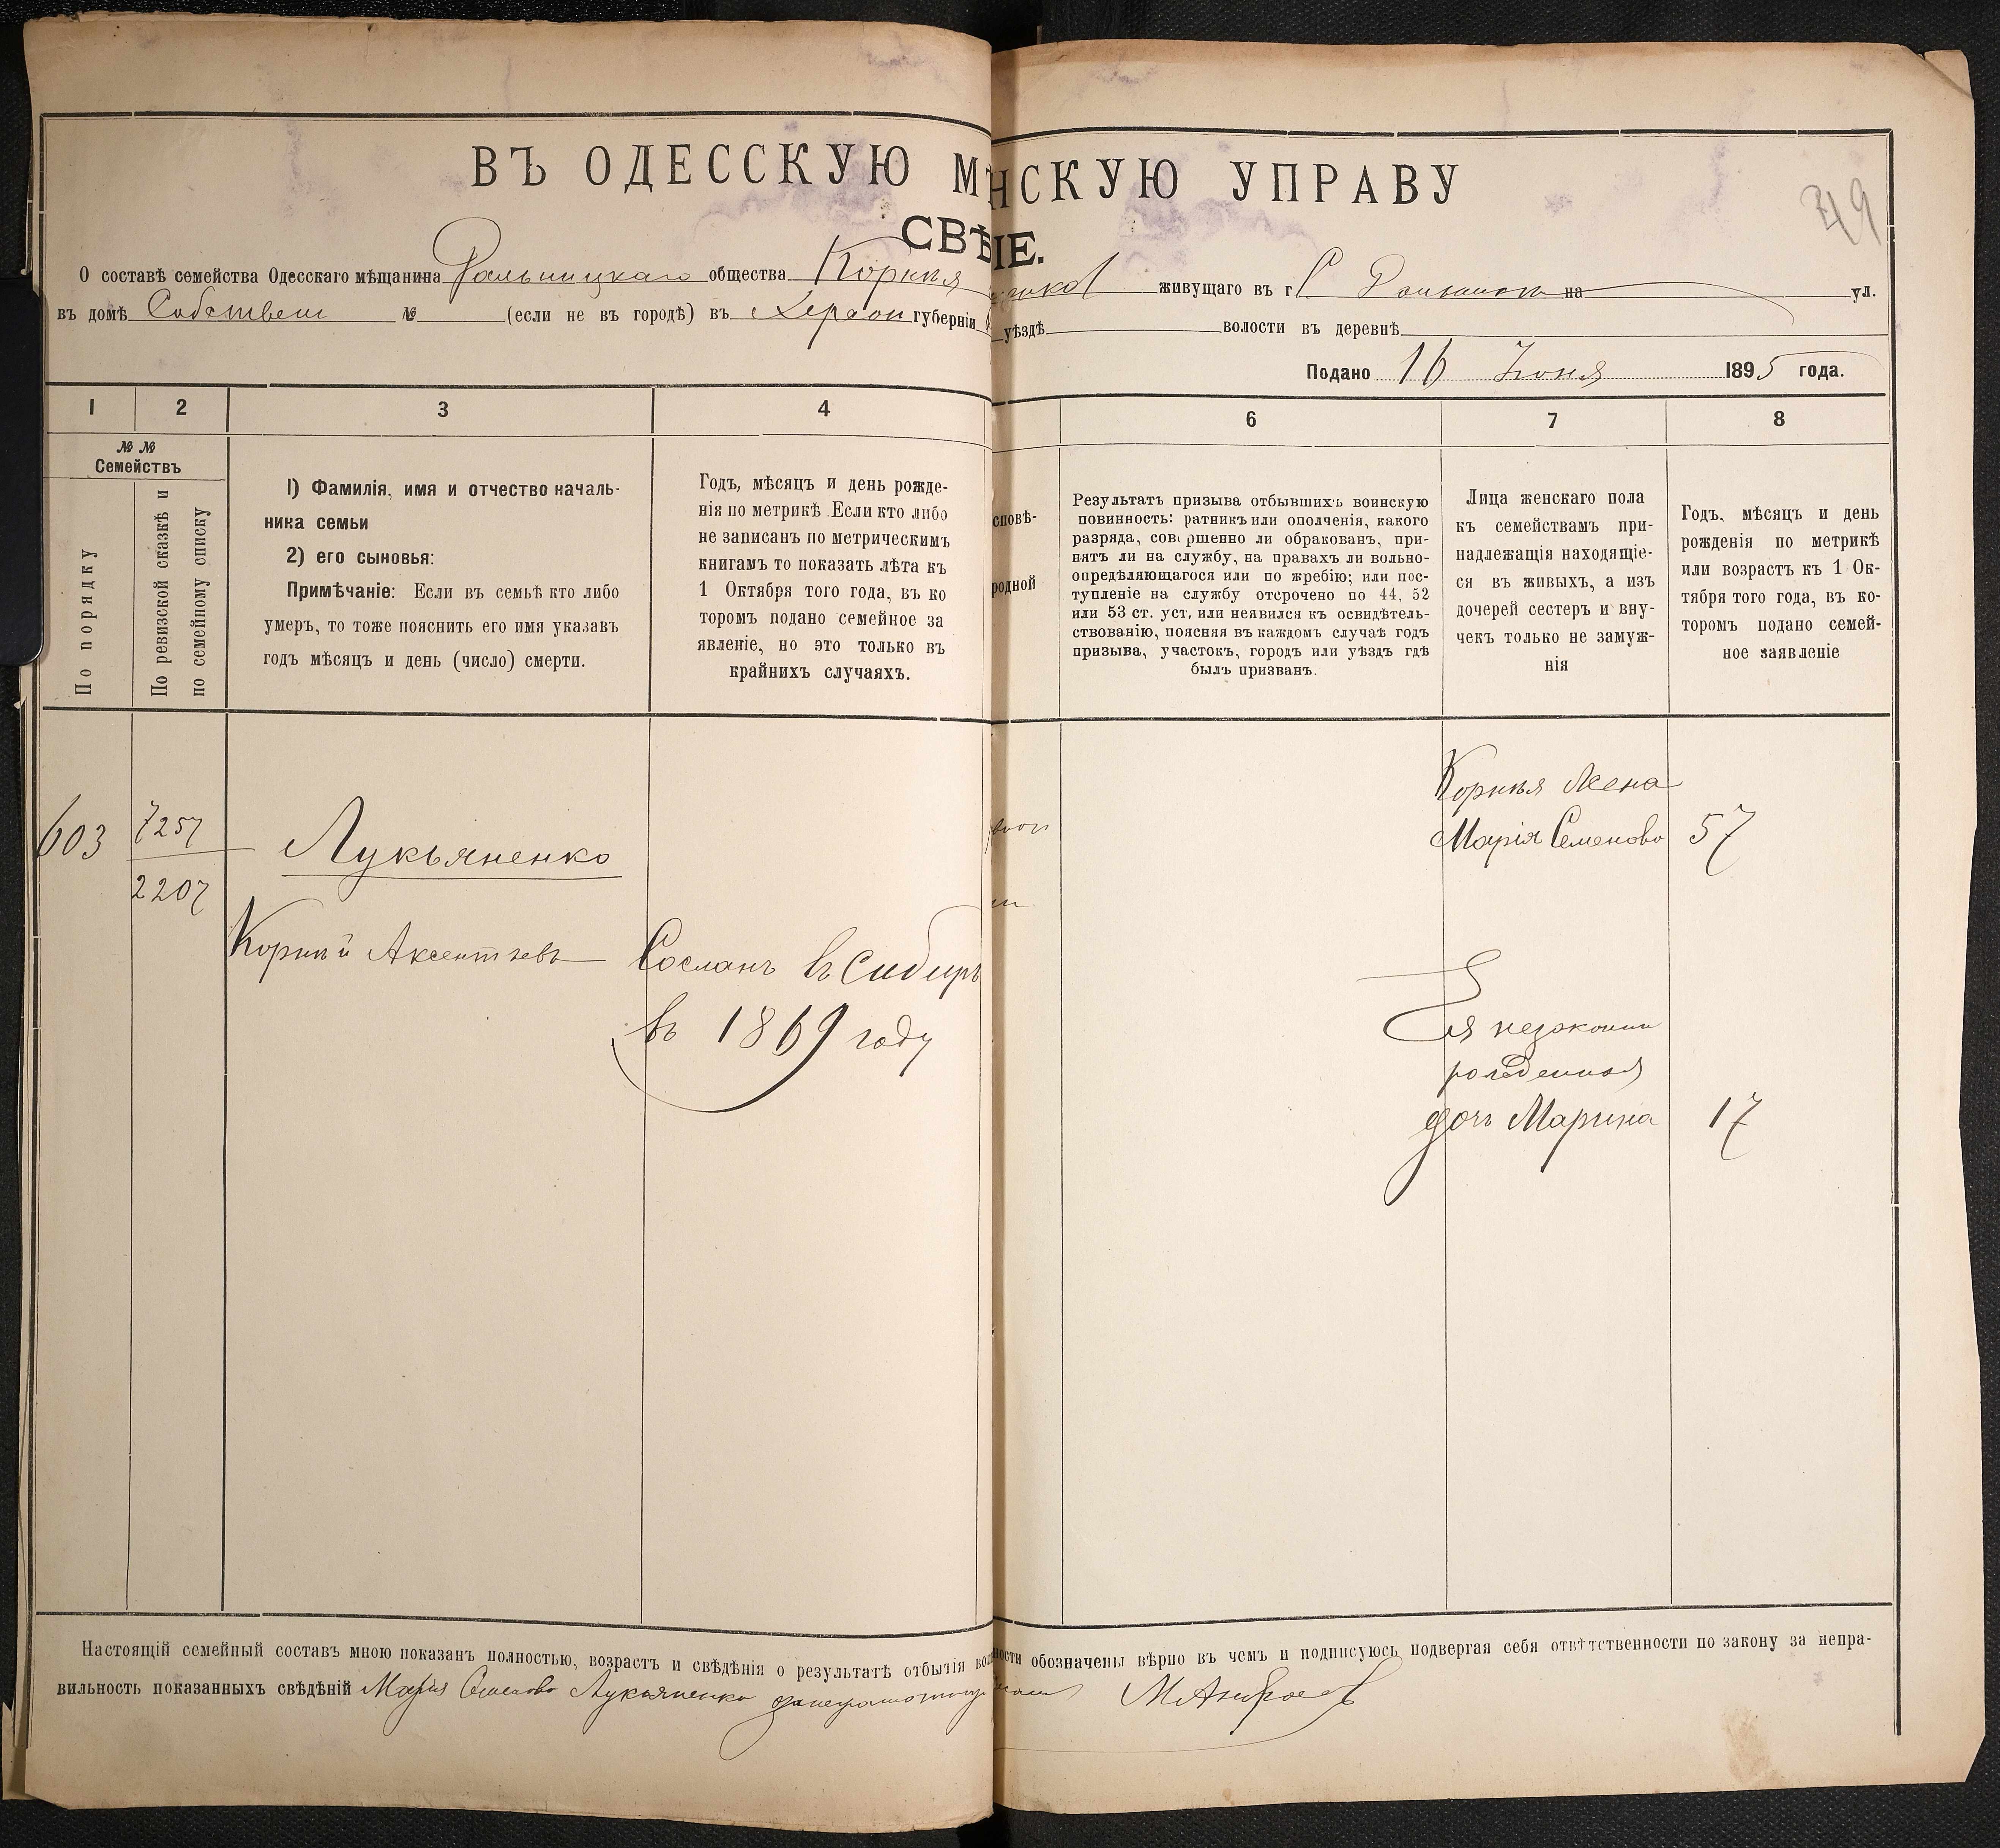 ВЪ ОДЕССКУЮ М НСКУЮ УПРАВУ
СВѢ IE.
49
О составѣ семейства Одесскаго мѣщанина Дальницкаго общества Корнѣя живущаго въ г. С Дальникъ на ул.
въ домѣ Собствен № (если не въ городѣ) въ Херсон губерніи уѣздѣ волости въ деревнѣ
Подано 16 Іюня 1895 года.
1 2 3 4 6 7 8
№ №
Семействъ
По порядку
По ревизской сказкѣ и
по семейному списку
1) Фамилія, имя и отчество началь-
ника семьи
2) его сыновья:
Примѣчаніе: Если въ семьѣ кто либо
умеръ, то тоже пояснить его имя указавъ
годъ мѣсяцъ и день (число) смерти.
Годъ, мѣсяцъ и день рожде-
нія по метрикѣ. Если кто либо
не записанъ по метрическимъ
книгамъ то показать лѣта къ
1 Октября того года, въ ко
торомъ подано семейное за
явленіе, но это только въ
крайнихъ случаяхъ.
сповѣ-
родной
Результатъ призыва отбывшихъ воинскую
повинность: ратникъ или ополченія, какого
разряда, совершенно ли обракованъ, при-
нятъ ли на службу, на правахъ ли вольно-
опредѣляющагося или по жребію; или пос-
тупленіе на службу отсрочено по 44, 52
или 53 ст. уст, или неявился къ освидѣтель-
ствованію, поясняя въ каждомъ случаѣ годъ
призыва, участокъ, городъ или уѣздъ гдѣ
былъ призванъ.
Лица женскаго пола
къ семействамъ при-
надлежащія находящіе-
ся въ живыхъ, а изъ
дочерей сестеръ и вну-
чекъ только не замуж-
нія
Годъ, мѣсяцъ и день
рожденія по метрикѣ
или возрастъ къ 1 Ок-
тября того года, въ ко-
торомъ подано семей-
ное заявленіе
603 7257
2207
Лукьяненко
Корнѣй Аксентьевъ
Сосланъ въ Сибирь
въ 1869 году
Корнѣя жена
Марія Семенова 57
Ея незаконно
рожденная
дочь Марина 17
Настоящій семейный составъ мною показанъ полностью, возрастъ и свѣдѣнія о результатѣ отбытія вои ности обозначены вѣрно въ чемъ и подписуюсь подвергая себя отвѣтственности по закону за непра-
вильность показанныхъ свѣдѣній Марія Семенова Лукьяненко